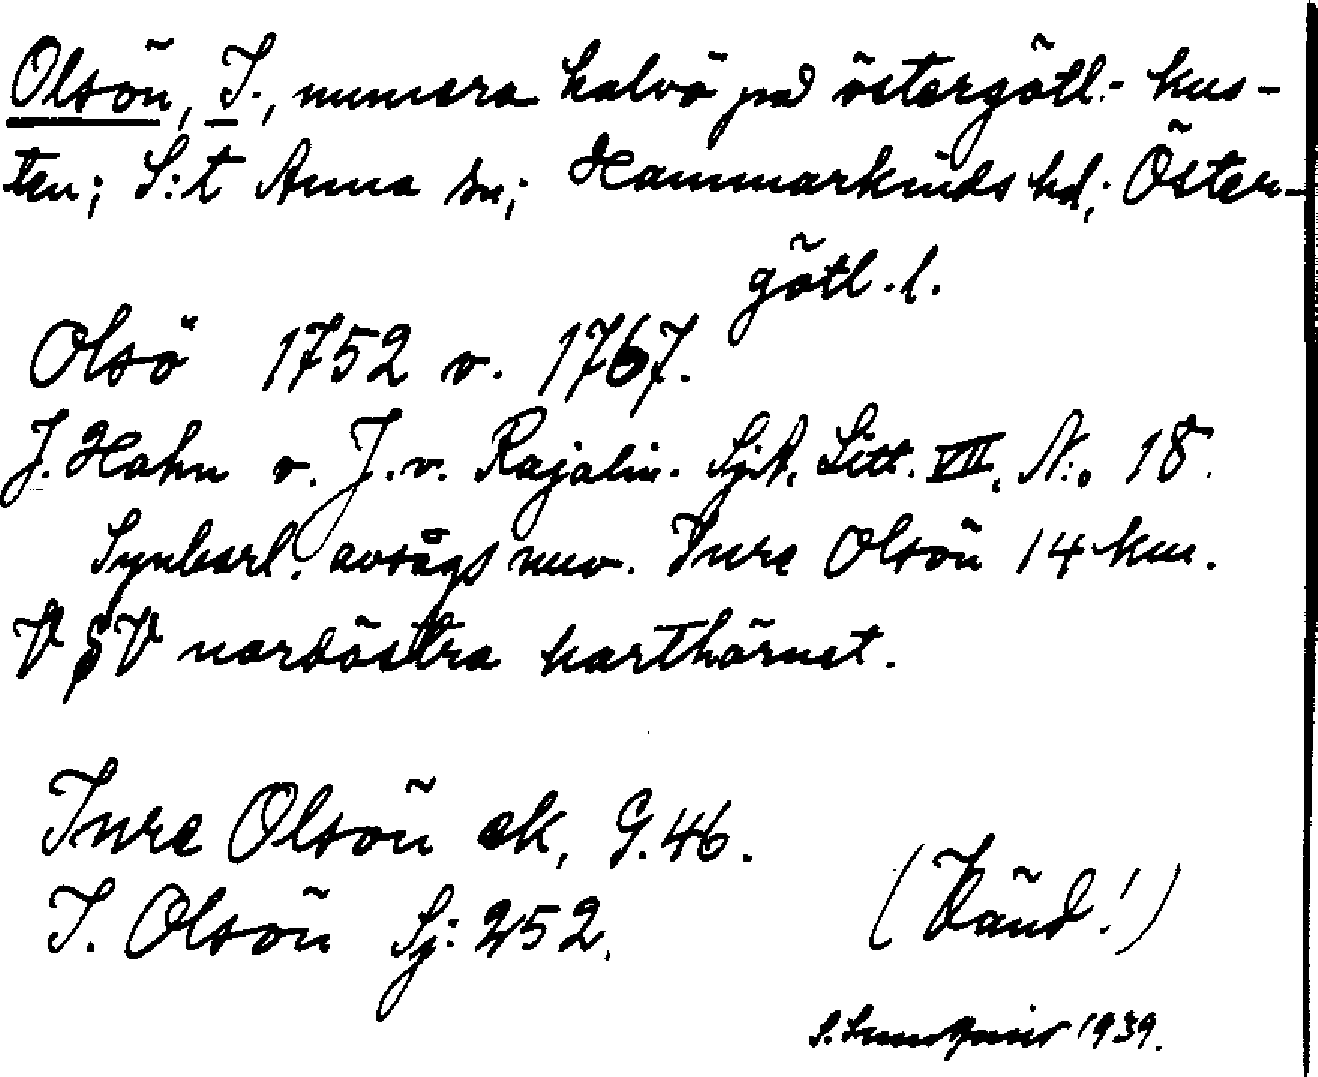 Olsön, I., numera halvö på östergötl. kus-
ten; S:t Anna sn; Hammarkinds hd; Öster-
götl. l.
Olsö 1752 o. 1767.
J. Hahn o. J. v. Rajalin. SjA. Litt. VII, N:o 18.
Synbarl. avsågs nuv. Inre Olsön 14 km.
V § V nordöstra karthörnet.
Inre Olsön ek, G. 46.
I. Olsön Sj: 252.
(Vänd!)
S. Lundquist 1939.